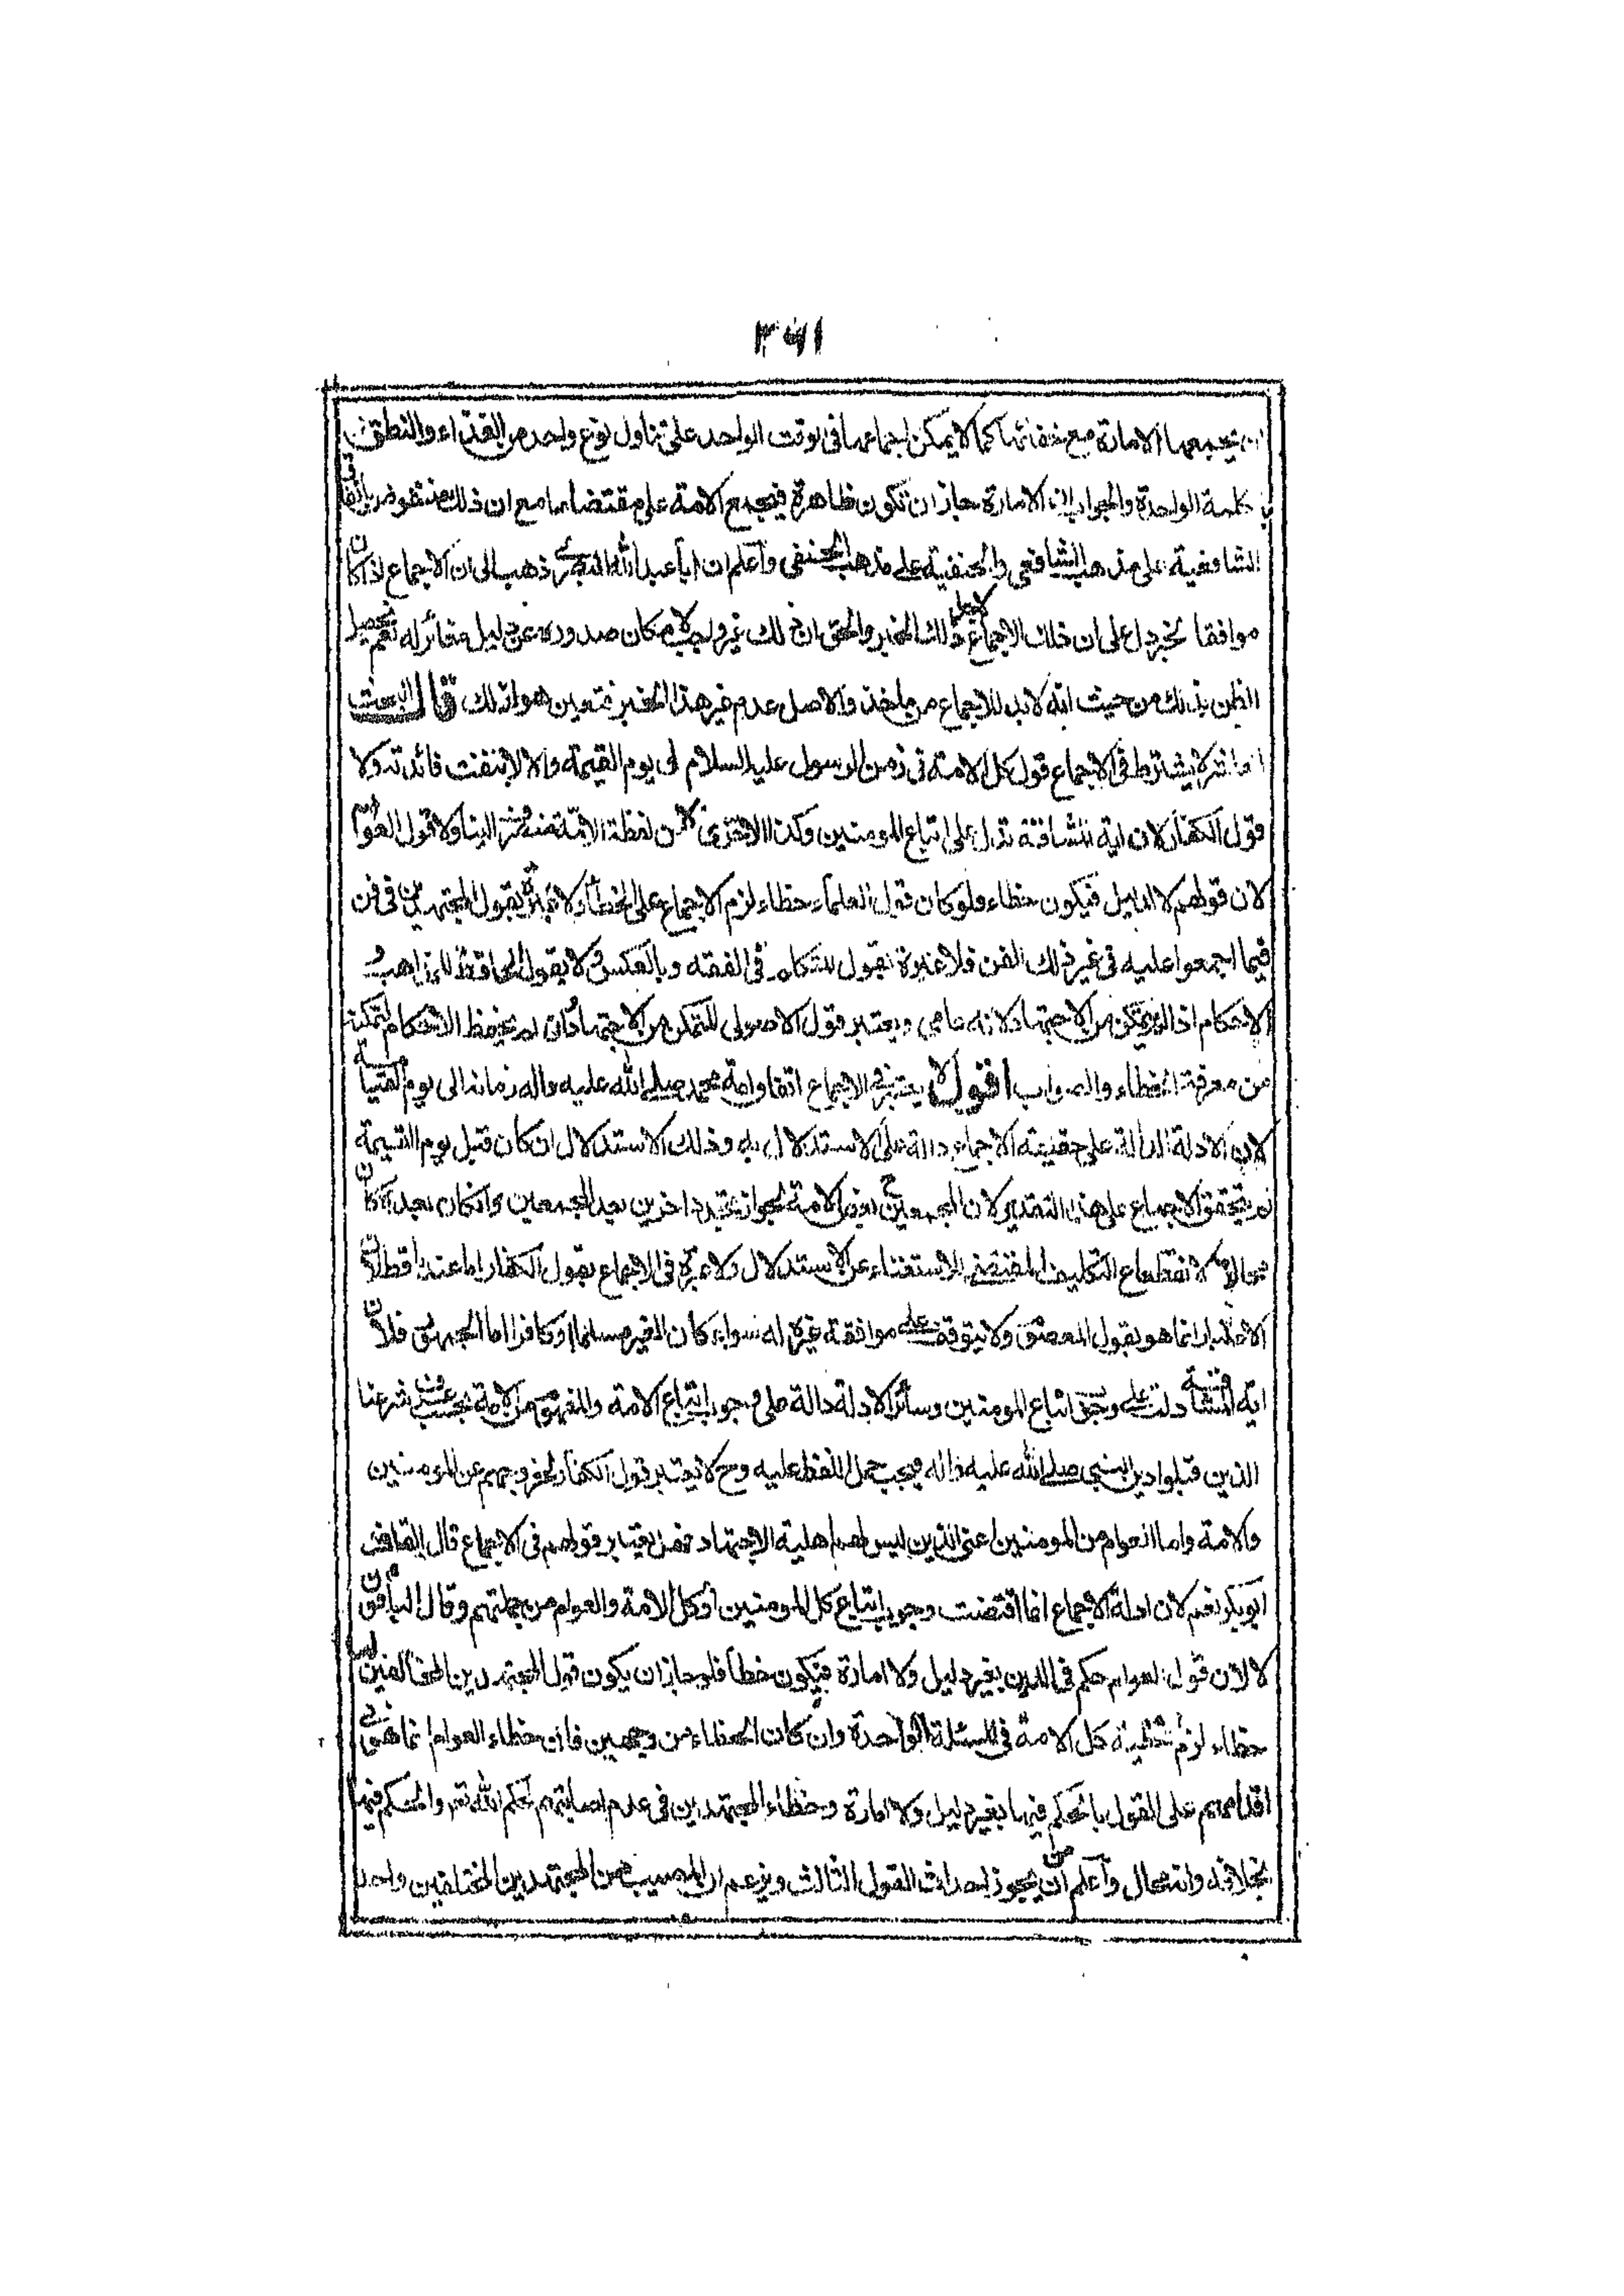 ٣٦١
ان يجمعها الامارة مع خفائها كما لا يمكن اجماعها فى الوقت الواحد على تناول نوع واحد من الغذاء والنطق
بكلمة الواحدة والجواب ان الامارة جاز ان تكون ظاهرة فيجمع الامة على مقتضاها مع ان ذلك منقوض باتفاق
الشافعية على مذهب الشافعى والحنفية على مذهب الحنفى واعلم ان ابا عبد الله البصرى ذهب الى ان الاجماع اذا كان
موافقا لخبر دل على ان ذلك الاجماع لاجل ذلك الخبر والحق ان ذلك غير واجب لامكان صدوره عن دليل مغائر له نعم يحصل
الظن بذلك من حيث انه لا بد للاجماع من ماخذ والاصل عدم غير هذا الخبر فتعين هو لذلك قال البحث
لا يشترط فى الاجماع قول كل الامة فى زمن الرسول عليه السلام الى يوم القيمة والا لانتفت فائدته ولا
قول الكفار لان اية المشاققة تدل على اتباع المومنين وكذا الاخرى لان لفظة الامة الينا ولا قول العوام
لان قولهم لا لدليل فيكون خطاء فلو كان قول العلماء خطاء لزم الاجماع على الخطأ ولا عبرة بقول المجتهدين فى فن
فيما اجمعوا عليه فى غير ذلك الفن فلا عبرة بقول المتكلم فى الفقه وبالعكس ولا بقول الحافظ للمذاهب و
الاحكام اذا لم يتمكن من الاجتهاد لانه عامى ويعتبر قول الاصولى المتمكن من الاجتهاد وان لم يحفظ الاحكام لتمكنه
من معرفة الخطاء والصواب اقول لا يعتبر فى الاجماع اتفاق امة محمد صلى الله عليه واله من زمانه الى يوم القيامة
لان الادلة الدالة على حقية الاجماع دالة على الاستدلال به وذلك الاستدلال ان كان قبل يوم القيمة
لم يتحقق الاجماع على هذا التقدير لان المجمعين ح بعض الامة لجواز تجدد اخرين بعد المجمعين وان كان بعده كان
محالا لانقطاع التكليف المقتضى للاستغناء عن الاستدلال ولا عبرة فى الاجماع بقول الكفار اما عندنا فلان
الاعتبار انما هو بقول المعصوم ولا يتوقف على موافقة غيره له سواء كان الغير مسلما او كافرا اما الجمهور فلان
اية المشاققة دلت على وجوب اتباع المومنين وسائر الادلة دالة على وجوب اتباع الامة والمفهوم من الامة بحسب عرف شرعنا
الذين قبلوا دين النبى صلى الله عليه واله فيجب حمل اللفظ عليه وح لا يعتبر قول الكفار لخروجهم عن المومنين
والامة واما العوام من المومنين اعنى الذين ليس لهم اهلية الاجتهاد فهل يعتبر قولهم فى الاجماع قال القاضى
ابو بكر نعم لان ادلة الاجماع انما اقتضت وجوب اتباع كل المومنين او كل الامة والعوام من جملتهم وقال الباقون
لا لان قول العوام حكم فى الدين بغير دليل ولا امارة فيكون خطأ فلو جاز ان يكون قول المجتهدين المخالفين لهم
خطاء لزم تخطية كل الامة فى المسئلة الواحدة وان كان الخطاء من وجهين فان خطاء العوام انما هو فى
اقدامهم على القول بالحكم فيها بغير دليل ولا امارة وخطاء المجتهدين فى عدم اصابتهم لحكم الله تعه والحكم فيها
بخلافه وانه محال واعلم ان من يجوز احداث القول الثالث ويزعم ان المصيب من المجتهدين المختلفين واحد